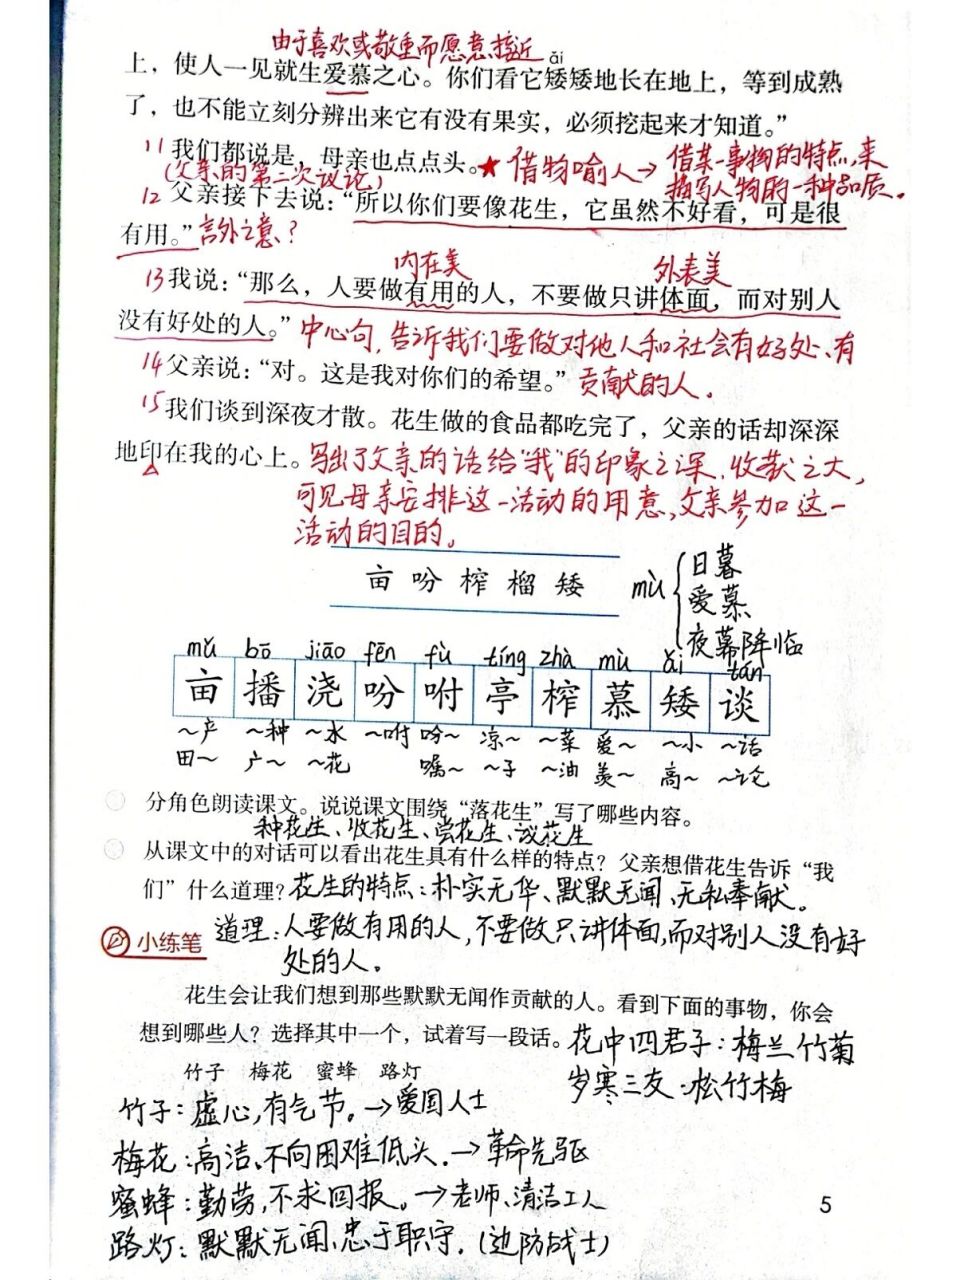 由于喜欢或敬重而愿意接近
ǎi
上，使人一见就生爱慕之心。你们看它矮矮地长在地上，等到成熟
了，也不能立刻分辨出来它有没有果实，必须挖起来才知道。”
11 我们都说是，母亲也点点头。★借物喻人→借某一事物的特点，来
描写人物的一种品质。
(父亲的第二次议论)
12 父亲接下去说：“所以你们要像花生，它虽然不好看，可是很
有用。”言外之意？
内在美 外表美
13 我说：“那么，人要做有用的人，不要做只讲体面，而对别人
没有好处的人。”中心句，告诉我们要做对他人和社会有好处、有
贡献的人。
14 父亲说：“对。这是我对你们的希望。”
15 我们谈到深夜才散。花生做的食品都吃完了，父亲的话却深深
地印在我的心上。写出了父亲的话给“我”的印象之深，收获之大，
可见母亲安排这一活动的用意，父亲参加这一
活动的目的。
亩 吩 榨 榴 矮
mù 日暮
爱慕
夜幕降临
mǔ bō jiāo fēn fù tíng zhà mù ǎi tán
亩 播 浇 吩 咐 亭 榨 慕 矮 谈
～产 ～种 ～水 ～咐 吩～ 凉～ ～菜 爱～ ～小 ～话
田～ 广～ ～花 嘱～ ～子 ～油 羡～ 高～ ～论
分角色朗读课文。说说课文围绕“落花生”写了哪些内容。
种花生、收花生、尝花生、议花生
从课文中的对话可以看出花生具有什么样的特点？父亲想借花生告诉“我
们”什么道理？花生的特点：朴实无华、默默无闻、无私奉献。
道理：人要做有用的人，不要做只讲体面，而对别人没有好
处的人。
小练笔
花生会让我们想到那些默默无闻作贡献的人。看到下面的事物，你会
想到哪些人？选择其中一个，试着写一段话。花中四君子：梅兰竹菊
竹子 梅花 蜜蜂 路灯 岁寒三友：松竹梅
竹子：虚心，有气节。→爱国人士
梅花：高洁、不向困难低头。→革命先驱
蜜蜂：勤劳，不求回报。→老师、清洁工人
路灯：默默无闻、忠于职守.（边防战士）
5